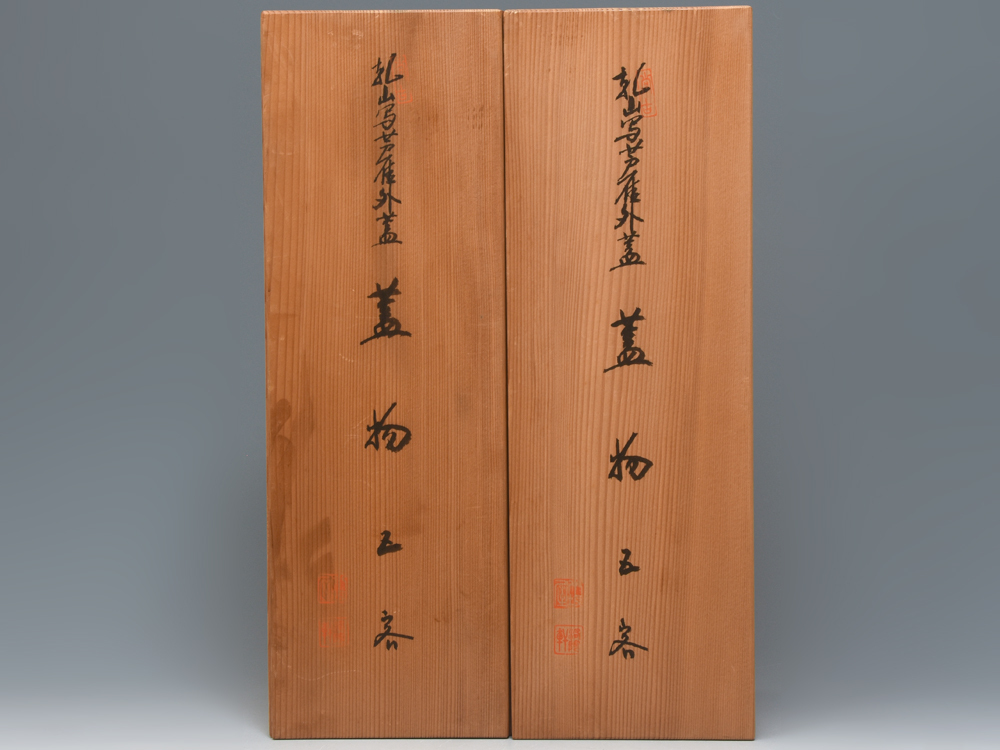 乾山写芳雁外蓋 蓋物 五客
乾山写芳雁外蓋 蓋物 五客